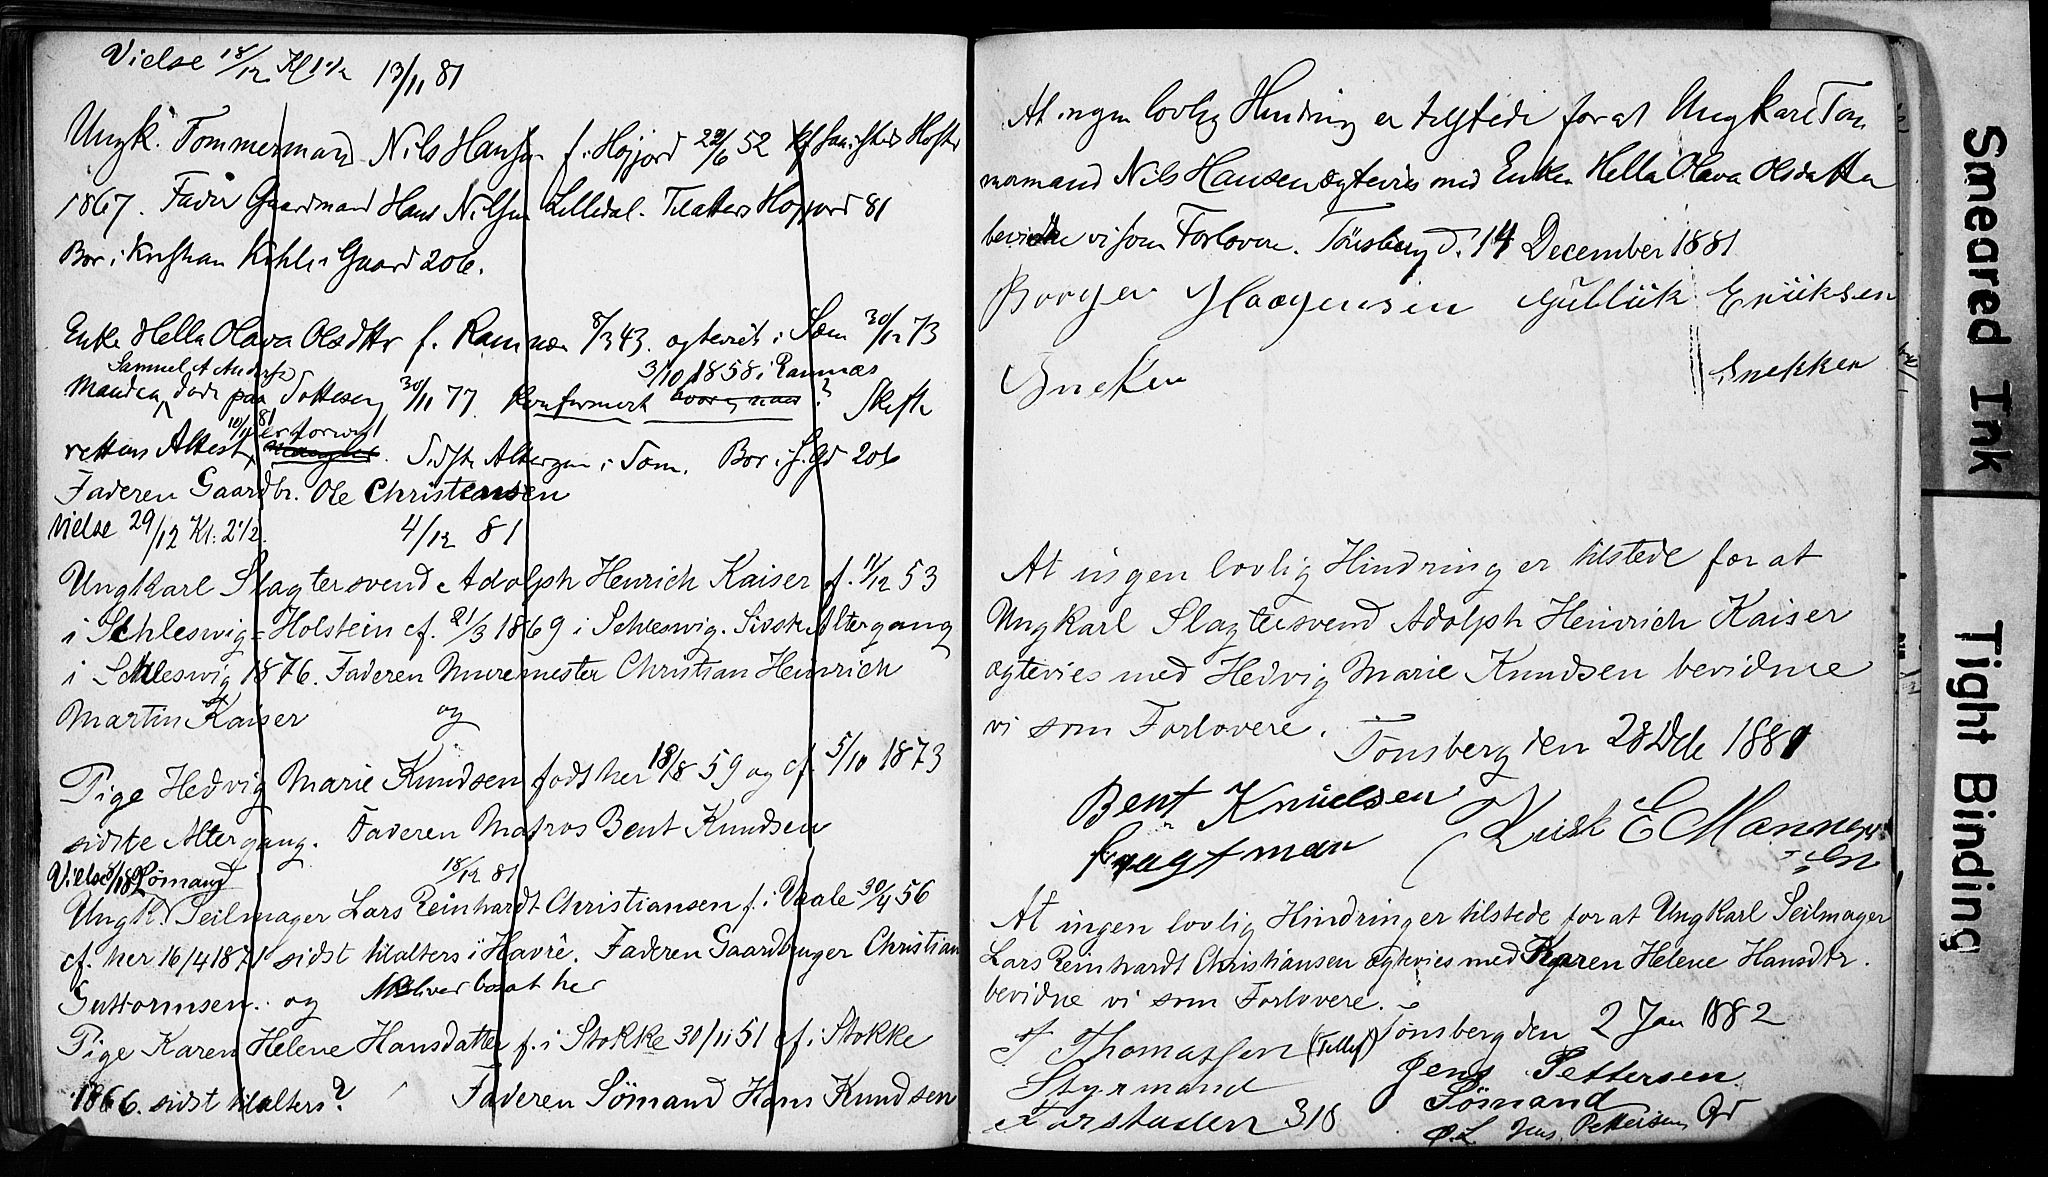 Vielse 18/12 Kl 1½ 13/11 81
Ungk. Tømmermand Nils Hansen f. i Høijord 22/6 52
1867. Fader Gaardmand Hans Nilsen Lilledal. Tilalters Høijord 81
Bor i Gaard 206.
Enke Hella Olava Olsdttr f. Ramnæs 8/3 43. ægteviet i Sem 30/12 73
Samuel A 3/10 1858 i Ramnæs
Manden døde paa 30/11 77 Konfirmert ? Skifte
10/11 81
rettens Attest Sidste Altergang i Søm. Bor i Gd 206
Faderen Gaardbr. Ole Christensen
Vielse 29/12 Kl. 2½. 4/12 81
Ungkarl Slagtersvend Adolph Henrich Kaiser f. 11/12 53
i Schleswig-Holstein cf. 21/3 1869 i Schleswig. Sidste Altergang
i Schleswig 1876. Faderen Muremester Christian Heinrich
Martin Kaiser og
Pige Hedvig Marie Knudsen født her 18/8 59 og cf. 5/10 1873
sidste Altergang. Faderen Matros Bent Knudsen
Vielse Sömand 18/12 81
Ungk. Seilmager Lars Reinhardt Christiansen f. i Vaale 30/4 56
cf. her 16/4 1871 sidst tilalters i Havre. Faderen Gaardbruger Christian
Guttormsen. og bliver bosat her
Pige Karen Helene Hansdatter f. i Stokke 30/11 51 cf. i Stokke
1866. sidst tilalters? Faderen Sömand Hans Knudsen
At ingen lovlig Hindring er tilstede for at Ungkarl Töm
mermand Nils Hansen ægtevies med Enken Hella Olava Olsdatter
bevidne vi som Forlovere. Tönsberg d. 14 December 1881
Borger Haagensen Gullick Ericksen
Sneken Snekker
At ingen lovlig Hindring er tilstede for at
Ungkarl Slagtersvend Adolph Heinrich Kaiser
ægtevies med Hedvig Marie Knudsen bevidne
vi som Forlovere.
Tönsberg den 28 Dcbr 1881
Bent Knudsen E Manne
fragtman
At ingen lovlig Hindring er tilstede for at Ungkarl Seilmager
Lars Reinhardt Christiansen ægtevies med Karen Helene Hansdtr.
bevidne vi som Forlovere.
Tönsberg den 2 Jan 1882
T Thomassen (Tellef) Jens Pettersen
Styrmand Sömand
Farstaden 318 Jens Pettersen
Smeared Ink
Tight Binding